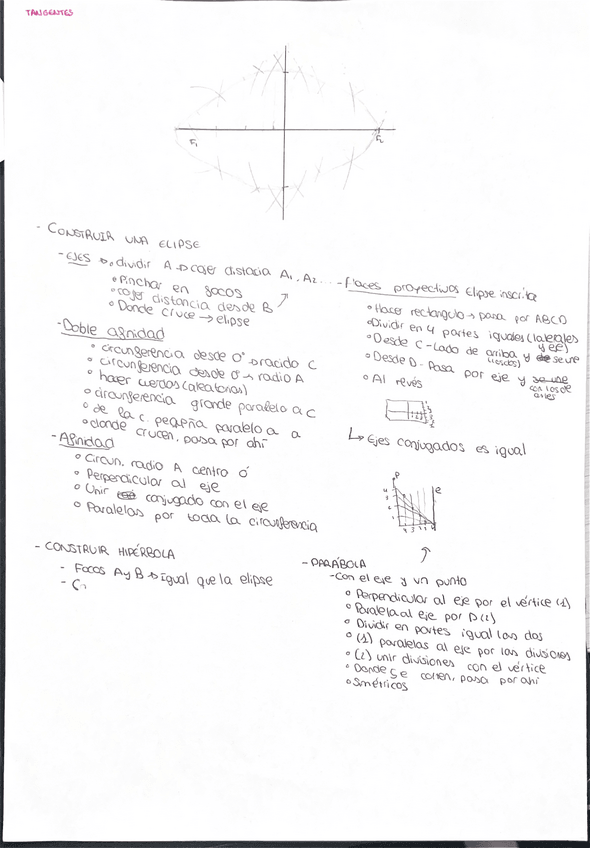 TANGENTES
F1
F2
- CONSTRUIR UNA ELIPSE
- EJES → dividir A → coger distancia A1, A2...
° Pinchar en focos
° coger distancia desde B
° Donde cruce → elipse
- Doble afinidad
° circunferencia desde O → radido C
° circunferencia desde O → radio A
° hacer cuerdas (aleatorias)
° circunferencia grande paralelo a C
° de la c. pequeña paralelo a a
° donde crucen, pasa por ahí
- Afinidad
° Circun. radio A centro O
° Perpendicular al eje
° Unir conjugado con el eje
° Paralelas por toda la circunferencia
- Haces proyectivos Elipse inscrita
° Hacer rectángulo → pasa por ABCD
° Dividir en 4 partes iguales (laterales
y eje)
° Desde C - Lado de arriba y se une
° Desde D - Pasa por eje y se une
con los de
antes
° Al revés
↳ Ejes conjugados es igual
P
e
- CONSTRUIR HIPÉRBOLA
- Focos A y B → igual que la elipse
- C
- PARÁBOLA
- Con el eje y un punto
° Perpendicular al eje por el vértice (1)
° Paralela al eje por P (2)
° Dividir en partes igual las dos
° (1) paralelas al eje por las divisiones
° (2) unir divisiones con el vértice
° Donde se corten, pasa por ahí
° Simétricos